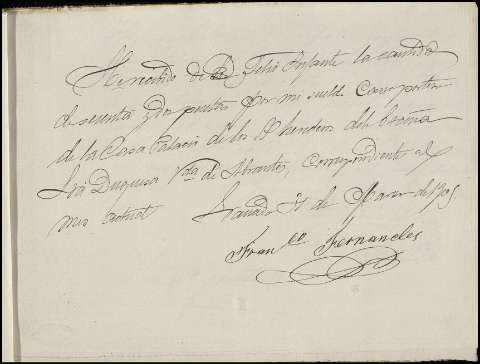 He recibido de D. Felix Infante la cantidad
de sesenta y dos pesetas por mi sueldo Como portero
de la Casa Palacio de los S. herederos de la Excma
Sra Duquesa Vda de Abrantes, correspondiente al
mes actual Granada 31 de Marzo de
Franco Fernandez